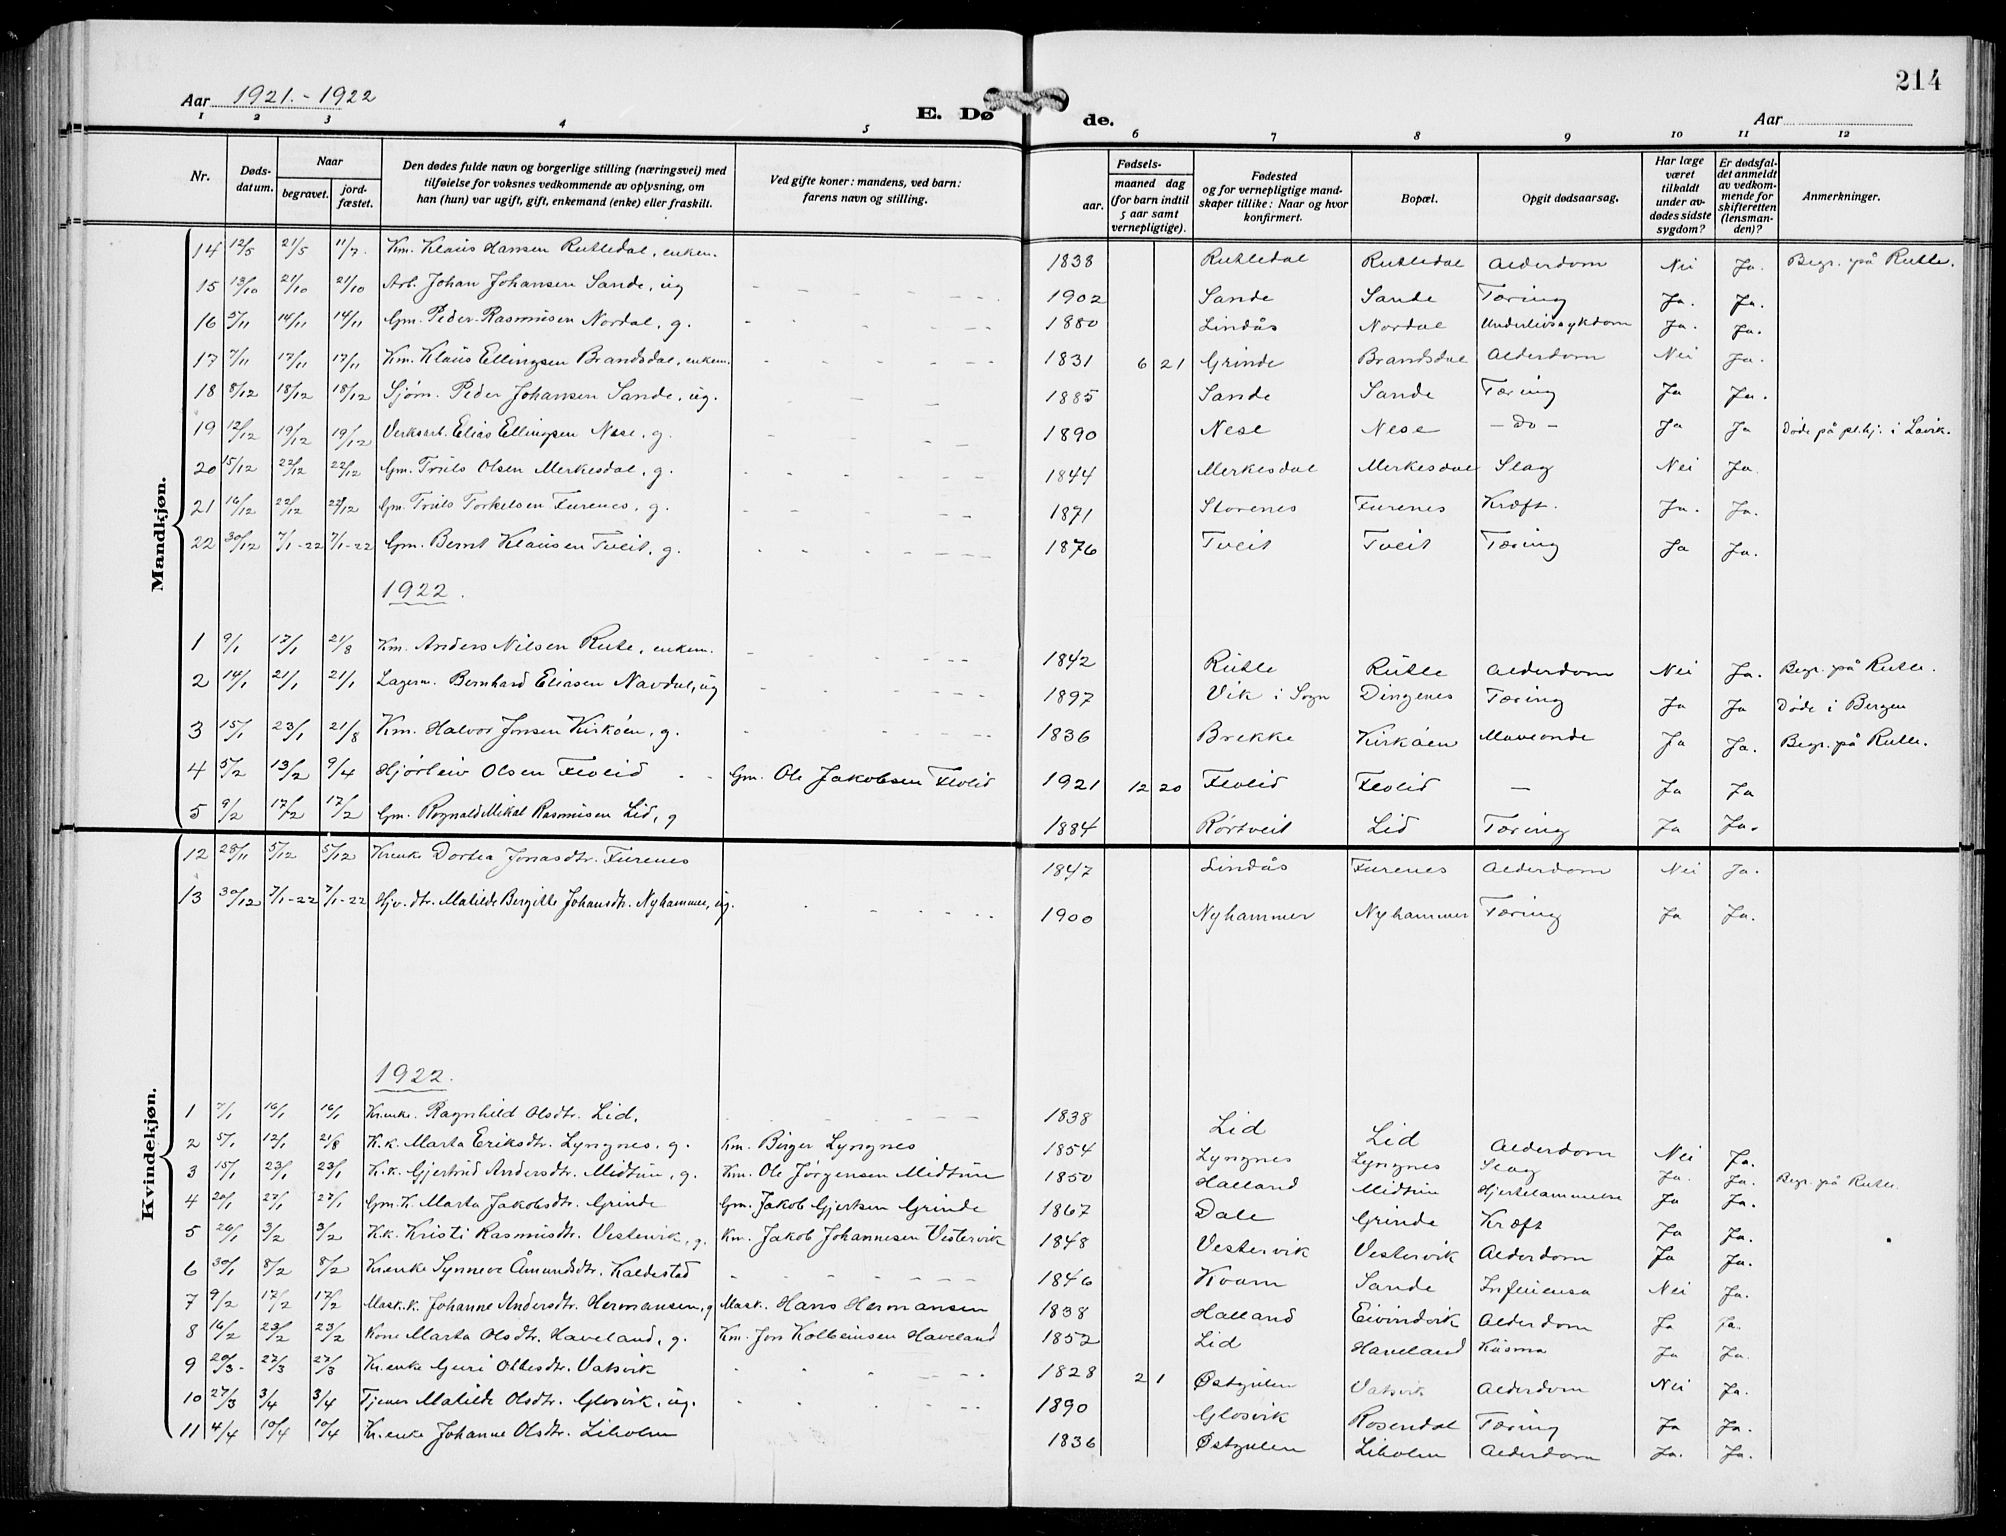 214
Aar 1921.-1922 E. Dø de. Aar
1 2 3 4 5 6 7 8 9 10 11 12
Nr. Døds-datum. Naar begravet. jord-fæstet. Den dødes fulde navn og borgerlige stilling (næringsvei) med tilføielse for voksnes vedkommende av oplysning, om han (hun) var ugift, gift, enkemand (enke) eller fraskilt. Ved gifte koner: mandens, ved barn: farens navn og stilling. Fødsels- aar. maaned dag (for barn indtil 5 aar samt vernepligtige). Fødested og for vernepligtige mand-skaper tillike: Naar og hvor konfirmert. Bopæl. Opgit dødsaarsag. Har læge været tilkaldt under av-dødes sidste sygdom? Er dødsfal-det anmeldt av vedkom-mende for skifteretten (lensman-den)? Anmerkninger.
Mandkjøn.
14 12/5 21/5 11/7. Km. Klaus Hansen Rutledal, enkem. 1838 Rutledal Rutledal Alderdom Nei Ja. Begr. på Rutle.
15 13/10 21/10 21/10 Arb. Johan Johansen Sande, ug 1902 Sande Sande Tæring Ja. Ja.
16 5/11 14/11 14/11 Gm. Peder Rasmusen Nordal, g. 1880 Lindås Nordal Underlivssykdom Ja. Ja.
17 7/11 17/11 17/11 Km. Klaus Ellingsen Brandsdal, enkem. 1831 6 21 Grinde Brandsdal Alderdom Nei Ja.
18 8/12 18/12 18/12 Sjøm. Peder Johansen Sande, ug. 1885 Sande Sande Tæring Ja Ja.
19 12/12 19/12 19/12 Verksarb. Elias Ellingsen Nese, g. 1890 Nese Nese - Do - Ja Ja Døde på pl.hj. i Lavik.
20 15/12 22/12 22/12 Gm. Truls Olsen Merkesdal, g. 1844 Merkesdal Merkesdal Slag Nei Ja.
21 16/12 22/12 22/12 Gm. Truls Torkelsen Furenes, g. 1871 Storenes Furenes Kræft. Ja. Ja.
22 30/12 7/1-22 7/1-22 Gm. Bernt Klausen Tveit, g. 1876 Tveit Tveit Tæring Ja Ja.
1922.
1 9/1 17/1 21/8 Km. Anders Nilsen Rutle, enkem. 1842 Rutle Rutle Alderdom Nei Ja. Begr. på Rutle.
2 14/1 21/1 21/1 Lagerm. Bernhard Eliasen Navdal, ug 1897 Vik i Sogn Dingenes Tæring Ja Ja Døde i Bergen
3 15/1 23/1 21/8 Km. Halvor Jonsen Kirkøen, g. 1836 Brekke Kirkøen Maveonde Ja Ja. Begr. på Rutle.
4 5/2 13/2 9/4 Hjørleiv Olsen Flolid Gm. Ole Jakobsen Flolid 1921 12 20 Flolid Flolid - Ja Ja
5 9/2 17/2 17/2 Gm. Rognald Mikal Rasmusen Lid, g 1884 Rørtveit Lid Tæring Ja Ja.
Kvindekjøn.
12 28/11 5/12 5/12 Kr.enke Dortea Jonasdtr. Furenes 1847 Lindås Furenes Alderdom Nei Ja.
13 30/12 7/1-22 7/1-22 Hjv. dtr. Matilde Bergitte Johansdtr. Nyhammer, ug. 1900 Nyhammer Nyhammer Tæring Ja Ja.
1922.
1 7/1 16/1 16/1 Kr.enke. Ragnhild Olsdtr. Lid. 1838 Lid Lid Alderdom Nei Ja.
2 5/1 12/1 21/8 K.k. Marta Eriksdtr. Lyngnes, g. Km. Birger Lyngnes 1854 Lyngnes Lyngnes Slag Ja. Ja. Begr. på Rutle.
3 15/1 23/1 23/1 K.k. Gjertrud Andersdtr. Midtun, g. Km. Ole Jørgensen Midtun 1850 Halland Midtun Hjertelammelse Ja Ja.
4 20/1 27/1 27/1 Gm.k. Marta Jakobsdtr. Grinde Gm. Jakob Gjertsen Grinde 1867 Dale Grinde Kræft Ja Ja.
5 26/1 3/2 3/2 K.k. Kristi Rasmusdtr. Vestervik, g. Km. Jakob Johannesen Vestervik 1848 Vestervik Vestervik Alderdom Ja Ja.
6 30/1 8/2 8/2 Kr.enke Synneve Åmundsdtr. Kaldestad 1846 Kvam Sande Influensa Nei Ja.
7 9/2 17/2 17/2 Mask.k. Johanne Andersdtr. Hermansen, g Mask. Hans Hermansen 1838 Halland Eivindvik Alderdom Ja Ja.
8 16/2 23/2 23/2 Kone Marta Olsdtr. Haveland, g. Km. Jon Kolbeinsen Haveland 1852 Lid Haveland Kusma Ja Ja.
9 20/3 27/3 27/3 Kr.enke Guri Olbesdtr. Vatsvik 1828 2 1 Østgulen Vatsvik Alderdom Nei Ja.
10 27/3 3/4 3/4 Tjener Matilde Olsdtr. Glosvik, ug. 1890 Glosvik Rosendal Tæring Ja Ja.
11 4/4 10/4 10/4 Kr.enke Johanne Olsdtr. Liholm 1836 Østgulen Liholm Alderdom Ja. Ja.